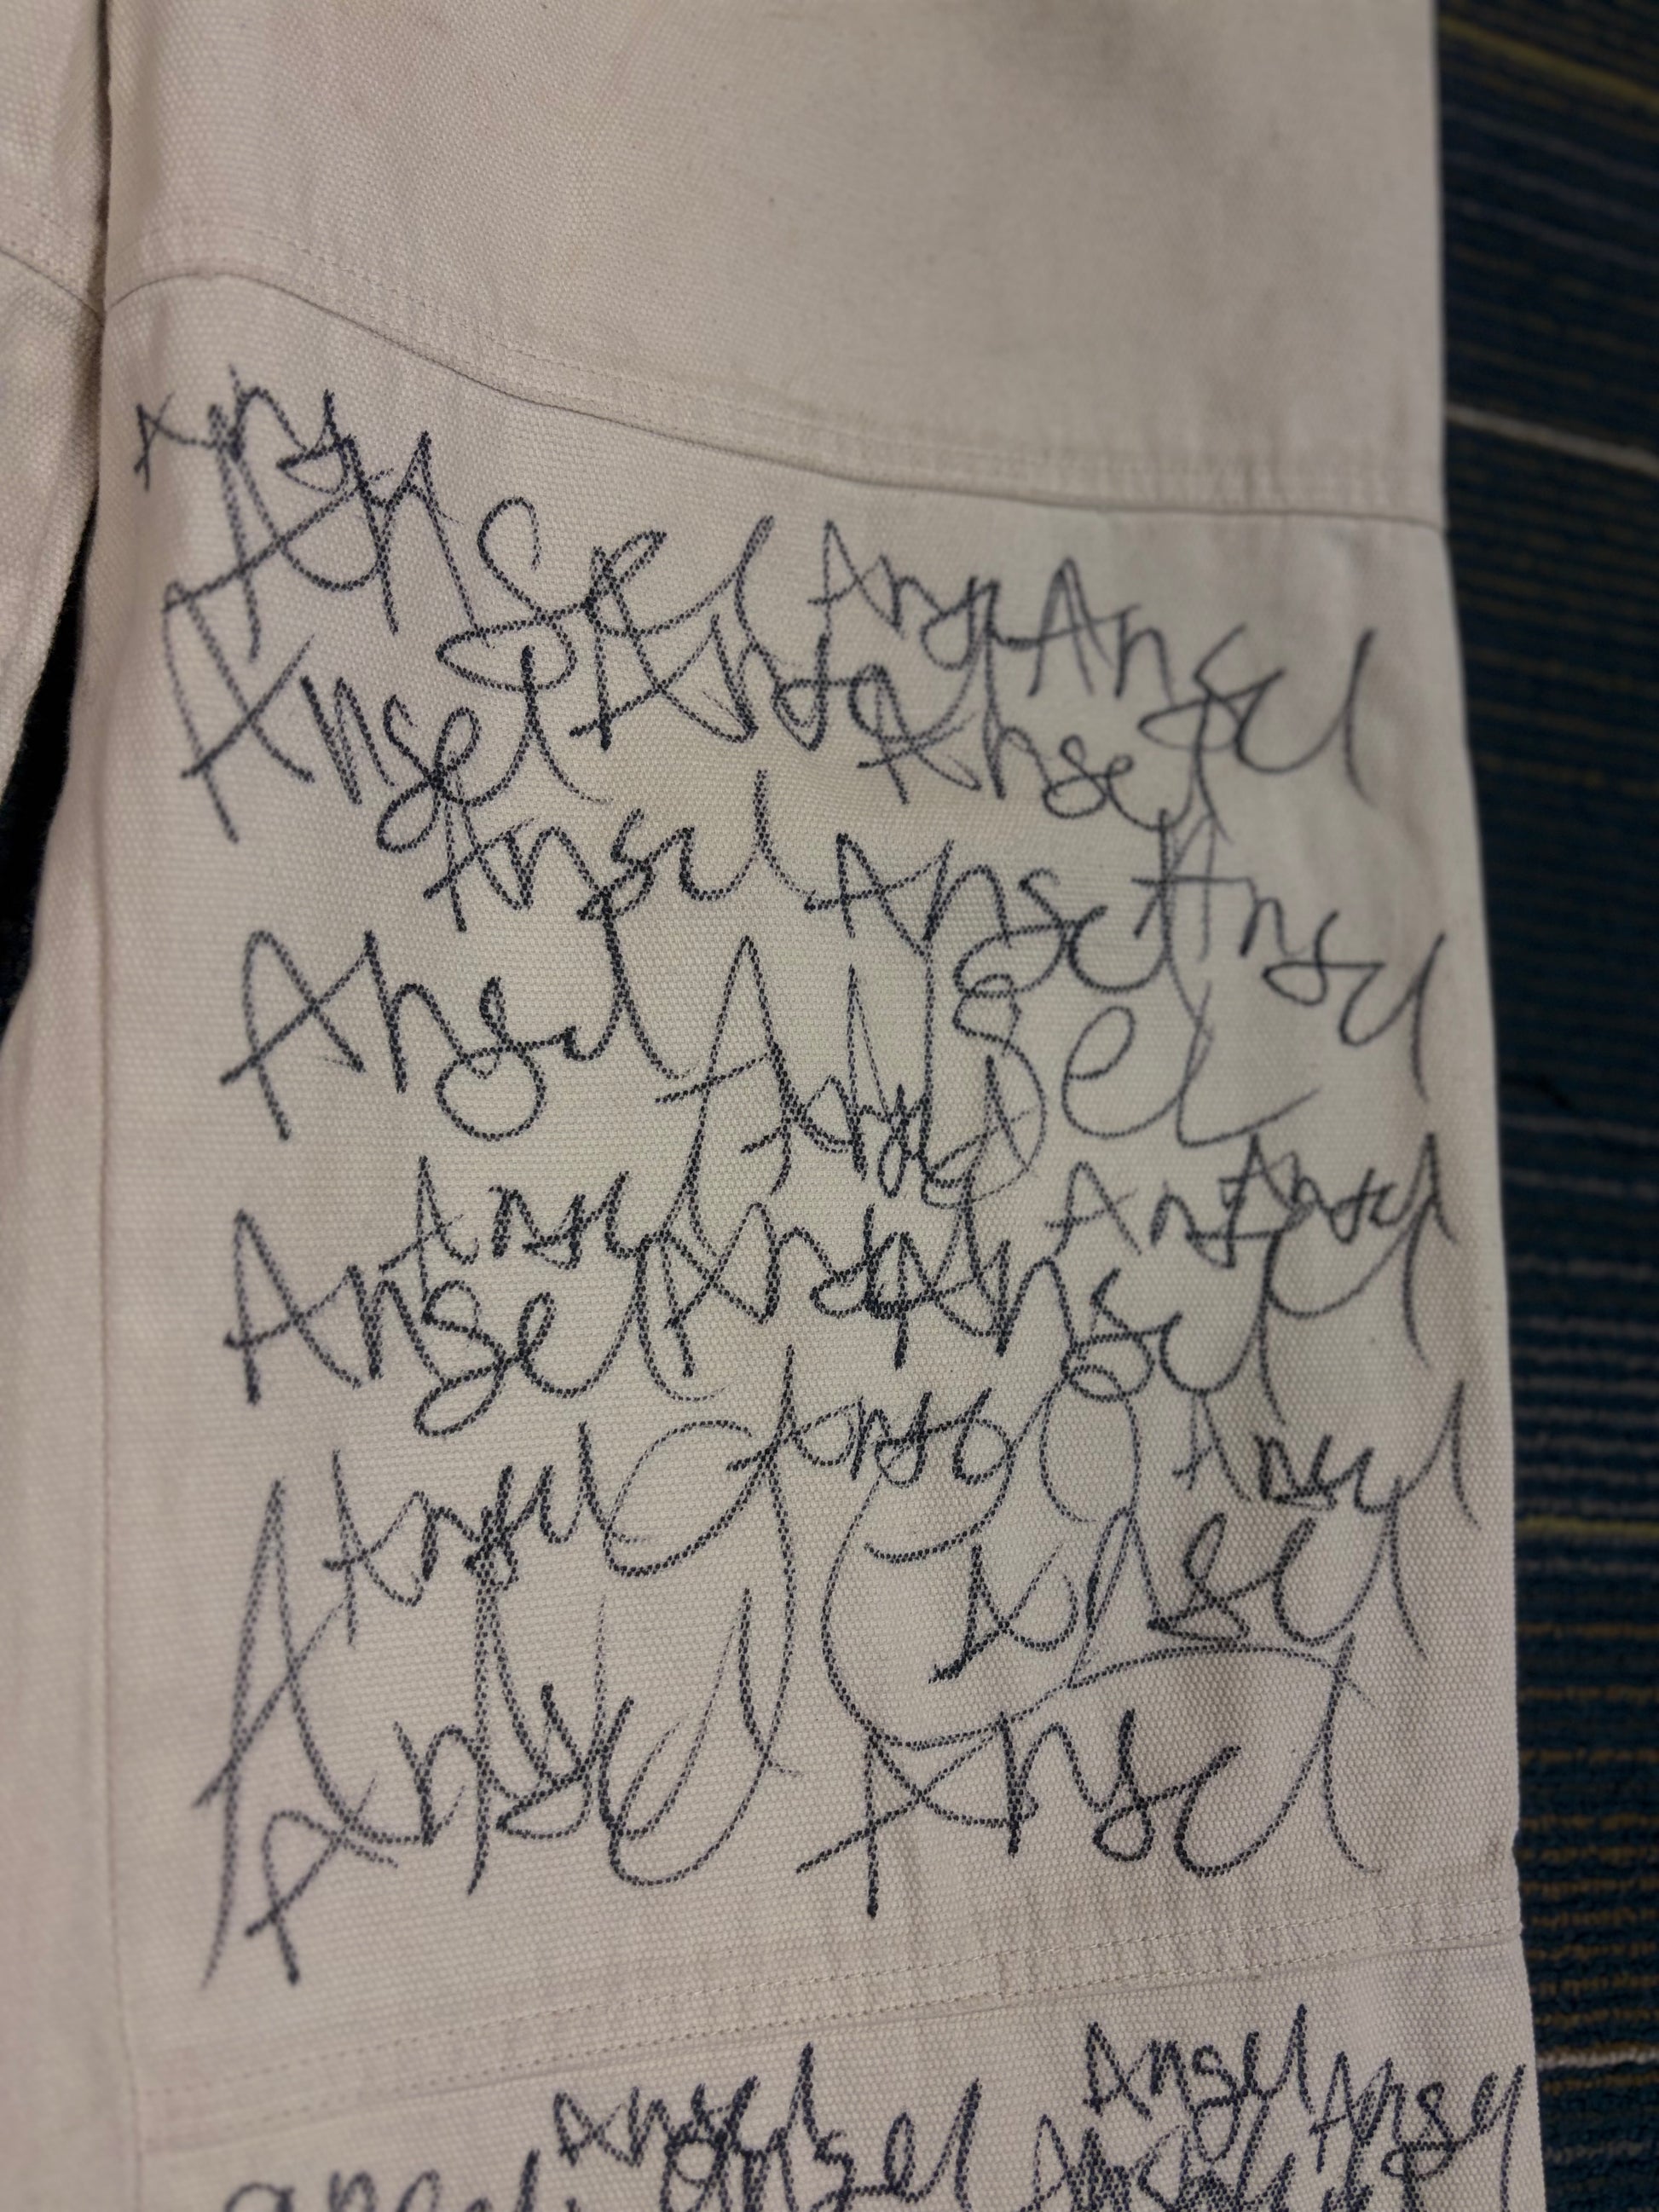 Ansel
Ansel Ansel
Ansel Ansel Ansel
Ansel Ansel Ansel
Ansel Ansel
Ansel
Ansel Ansel Ansel
Ansel Ansel Ansel
Ansel Ansel Ansel
Ansel Ansel
Ansel Ansel
Ansel Ansel
Ansel Ansel
Ansel